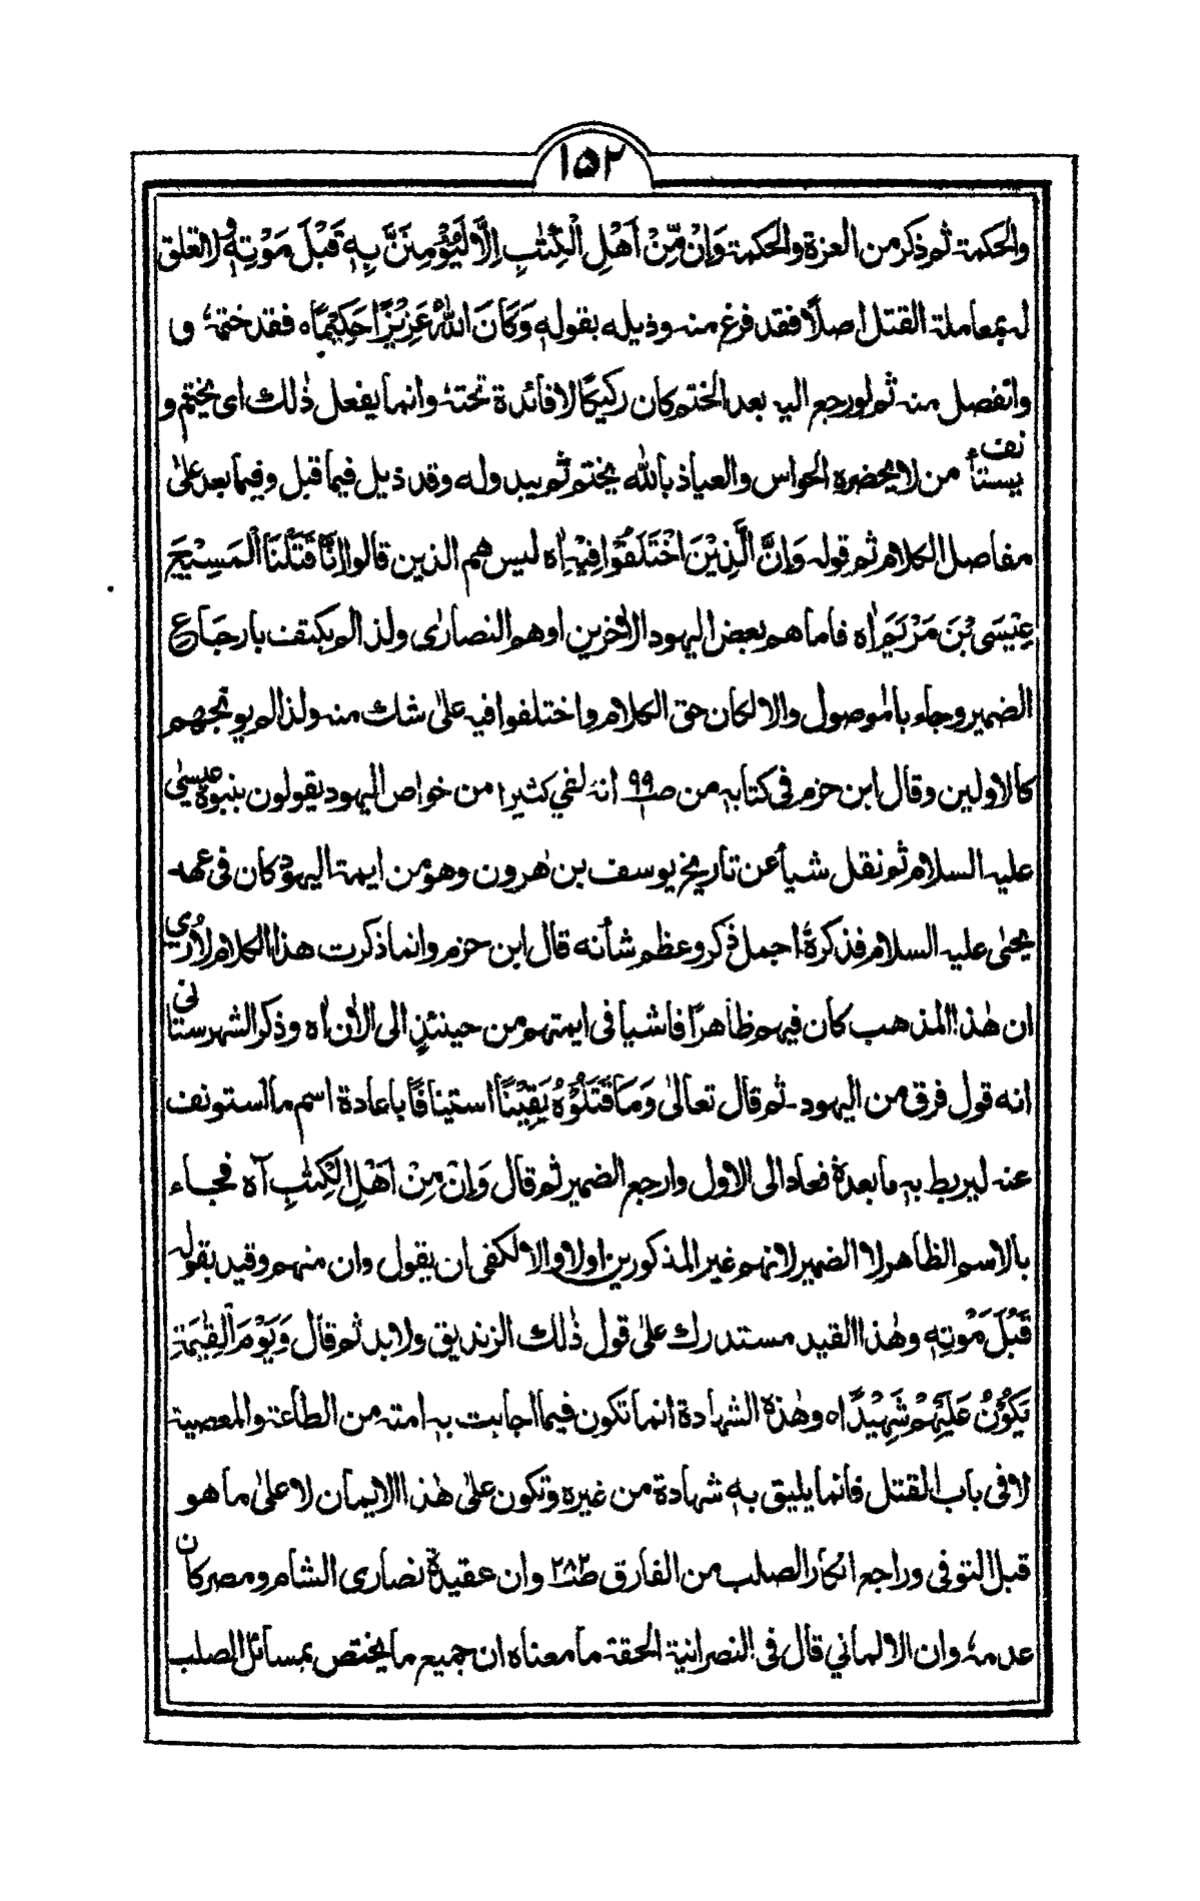 ١٥٢
والحكمة ثم ذكر من العزة والحكمة وَاِنْ مِّنْ اَهْلِ الْكِتٰبِ اِلَّا لَيُؤْمِنَنَّ بِهٖ قَبْلَ مَوْتِهٖ ولا تعلق
له بمعاملة القتل اصلًا فقد فرغ منه وذيله بقولهٖ وَكَانَ اللهُ عَزِيْزًا حَكِيْمًاه فقد ختمہٗ و
وانفصل منه ثم لو رجع اليه بعد الختم كان ركيكًا لا فائدة تحتہٗ وانما يفعل ذٰلك اى يختم و
يستأنف من لا يحضره الحواس والعياذ بالله يختم ثم يبدو له وقد ذيل فيما قبل وفيما بعد علىٰ
مفاصل الكلام ثم قوله وَاِنَّ الَّذِيْنَ اخْتَلَفُوْا فِيْهِ اٰه ليس هم الذين قالوا اِنَّا قَتَلْنَا الْمَسِيْحَ
عِيْسَى بْنَ مَرْيَمَ اٰه فاما هم بعض اليهود الاٰخرين او هم النصارٰى ولذا لم يكتف بارجاع
الضمير وجاء بالموصول والا لكان حق الكلام واختلفوا فيه علىٰ شك منه ولذا لم يوبخهم
كالاولين وقال ابن حزم فى كتابهٖ من صـ٩٩ انه لقي كثيرا من خواص اليهود يقولون بنبوة عيسىٰ
عليه السلام ثم نقل شيأ عن تاريخ يوسف بن هٰرون وهو من ايمة اليهود كان فى عهد
يحيىٰ عليه السلام فذكرهٗ اجمل ذكر وعظم شأنه قال ابن حزم وانما ذكرت هذا الكلام لاُرِي
ان هٰذا المذهب كان فيهم ظاهرًا فاشيا فى ايمتهم من حينئذٍ الى الاٰن اٰه وذكر الشهرستانى
انه قول فرق من اليهود۔ ثم قال تعالىٰ وَمَا قَتَلُوْهُ يَقِيْنًا استينافًا باعادة اسم ما استونف
عنه ليربط بهٖ ما بعدهٗ فعاد الى الاول وارجع الضمير ثم قال وَاِنْ مِنْ اَهْلِ الْكِتٰبِ آه فجاء
بالاسم الظاهر لا الضمير لانهم غير المذكورين اولا والا لكفى ان يقول وان منهم وقيد بقوله
قَبْلَ مَوْتِهٖ وهٰذا القيد مستدرك علىٰ قول ذٰلك الزنديق ولا بد ثم قال وَيَوْمَ الْقِيٰمَةِ
يَكُوْنُ عَلَيْهِمْ شَهِيْدًا اه وهٰذه الشهادة انما تكون فيما اجابت بهٖ امته من الطاعة والمعصية
لا فى باب القتل فانما يليق بهٖ شهادة من غيره وتكون علىٰ هٰذا الايمان لا علىٰ ما هو
قبل التوفى وراجع انكار الصلب من الفارق صـ٢٨٢ وان عقيدة نصارى الشام ومصر كان
عدمہٗ وان الالماني قال فى النصرانية الحقة ما معناه ان جميع ما يختص بمسائل الصلب